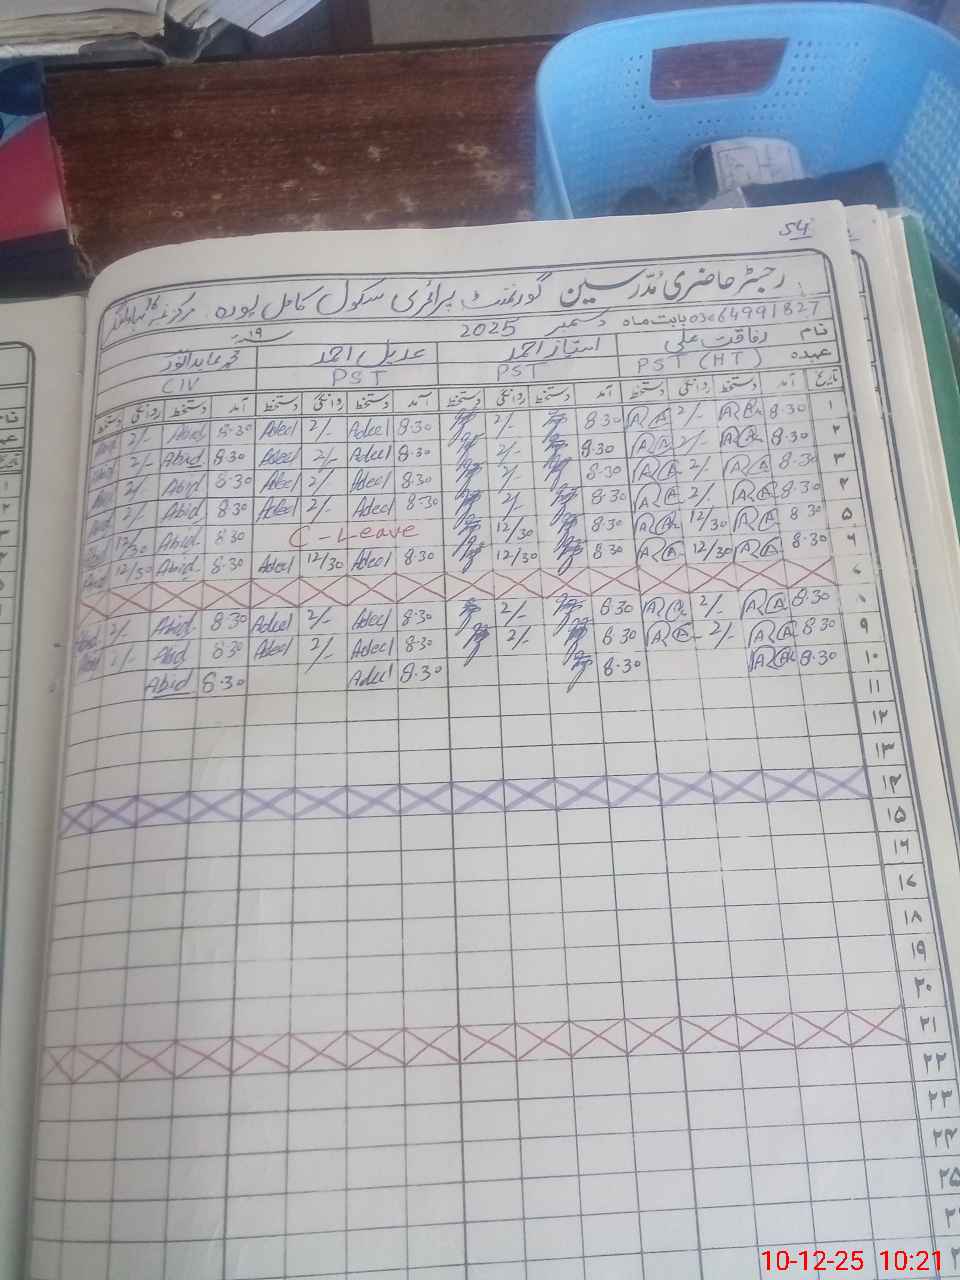 54
رجسٹر حاضری مدرسین گورنمنٹ پرائمری سکول کامل پورہ مرکز
بابت ماہ دسمبر 2025 ۱۹
نام رفاقت علی امتیاز احمد عدیل احمد محمد عابد انور
عہدہ PST (HT) PST PST CIV
تاریخ آمد دستخط روانگی دستخط آمد دستخط روانگی دستخط آمد دستخط روانگی دستخط آمد دستخط روانگی دستخط
۱ 8.30 2/- 8.30 2/- 8.30 Adeel 2/- Adeel 8.30 Abid 2/-
۲ 8.30 2/- 8.30 2/- 8.30 Adeel 2/- Adeel 8.30 Abid 2/-
۳ 8.30 2/- 8.30 2/- 8.30 Adeel 2/- Adeel 8.30 Abid 2/-
۴ 8.30 2/- 8.30 2/- 8.30 Adeel 2/- Adeel 8.30 Abid 2/-
۵ 8.30 12/30 8.30 12/30 C-Leave 8.30 Abid 12/30
۶ 8.30 12/30 8.30 12/30 8.30 Adeel 12/30 Adeel 8.30 Abid 12/30
۸ 8.30 2/- 8.30 2/- 8.30 Adeel 2/- Adeel 8.30 Abid 2/-
۹ 8.30 2/- 8.30 2/- 8.30 Adeel 2/- Adeel 8.30 Abid 2/-
۱۰ 8.30 8.30 8.30 Adeel 8.30 Abid
۱۱
۱۲
۱۳
۱۴
۱۵
۱۶
۱۷
۱۸
۱۹
۲۰
۲۱
۲۲
۲۳
۲۴
۲۵
10-12-25 10:21